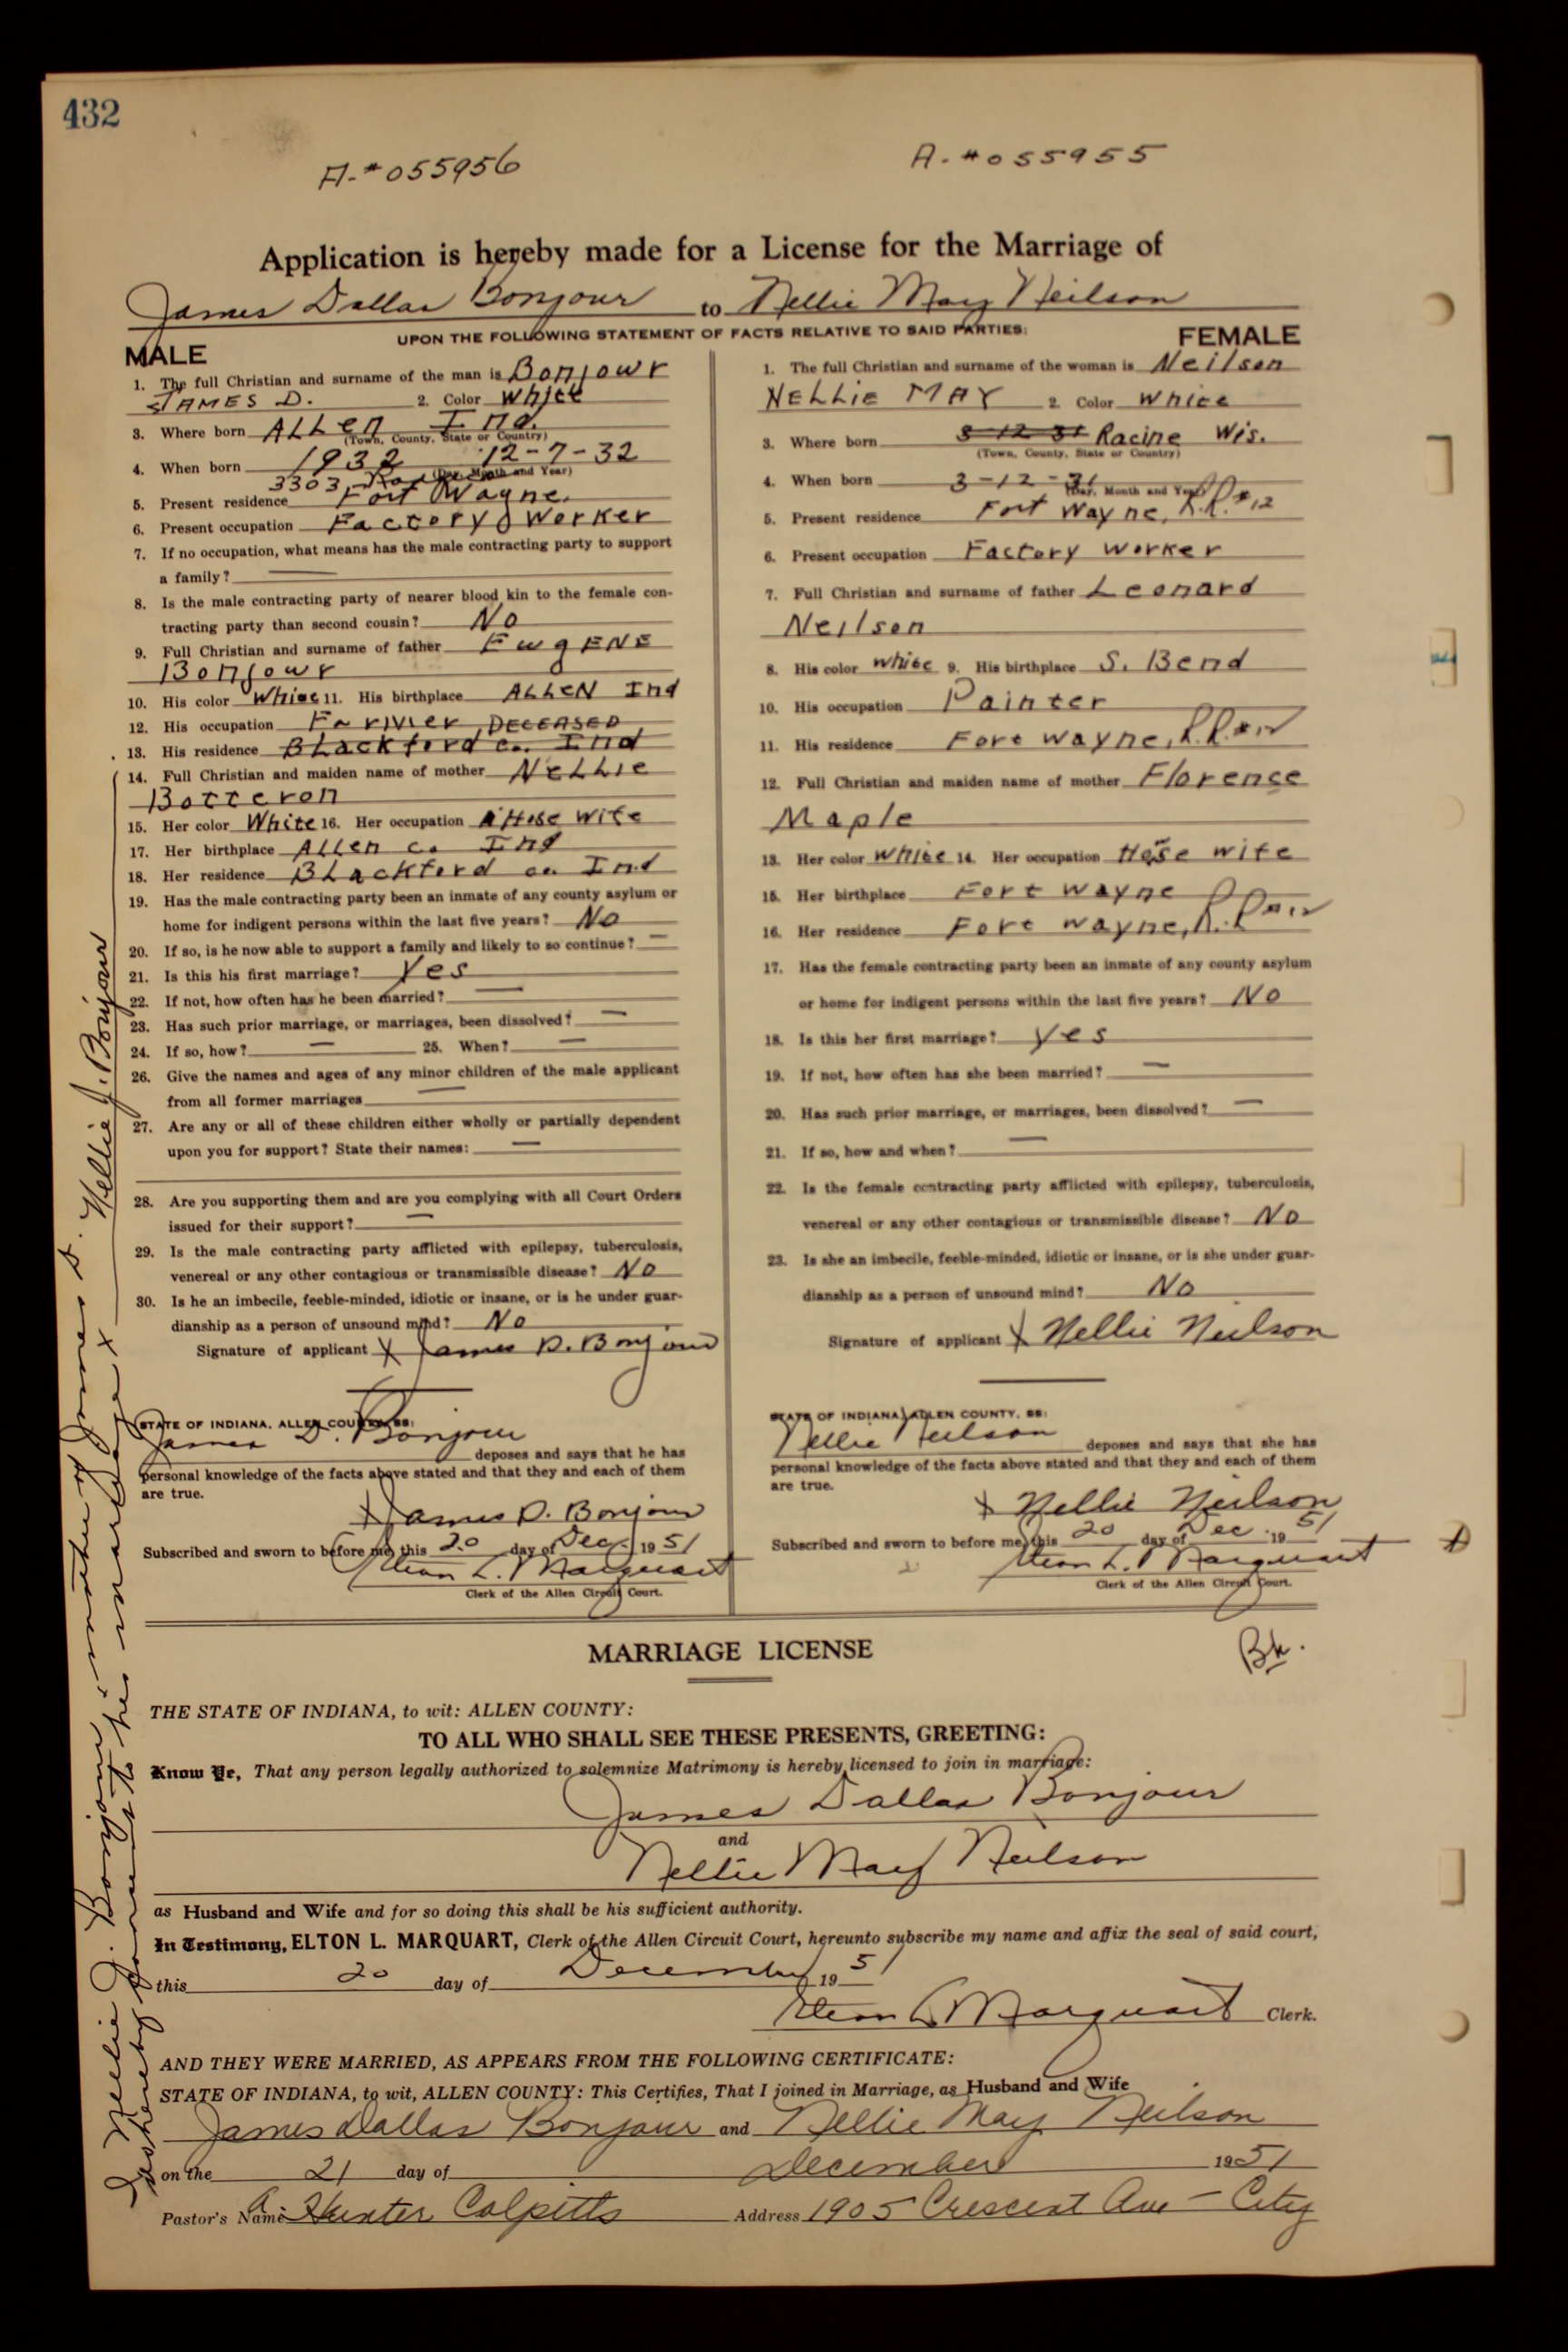 432
A-#055956
A.-#055955
Application is hereby made for a License for the Marriage of
James Dallas Bonjour to Nellie May Neilson
UPON THE FOLLOWING STATEMENT OF FACTS RELATIVE TO SAID PARTIES:
MALE
1. The full Christian and surname of the man is Bonjour
JAMES D. 2. Color White
3. Where born ALLEN Ind.
(Town, County, State or Country)
4. When born 1932 12-7-32
(Day, Month and Year)
3303
5. Present residence Fort Wayne.
6. Present occupation Factory Worker
7. If no occupation, what means has the male contracting party to support
a family? —
8. Is the male contracting party of nearer blood kin to the female con-
tracting party than second cousin? No
9. Full Christian and surname of father EugENE
Bonjour
10. His color White 11. His birthplace ALLEN Ind
12. His occupation Farmer DECEASED
13. His residence BLackford co. Ind
14. Full Christian and maiden name of mother NELLIE
Botteron
15. Her color White 16. Her occupation House wife
17. Her birthplace ALLen co Ind
18. Her residence BLackford co Ind
19. Has the male contracting party been an inmate of any county asylum or
home for indigent persons within the last five years? No
20. If so, is he now able to support a family and likely to so continue? —
21. Is this his first marriage? Yes
22. If not, how often has he been married? —
23. Has such prior marriage, or marriages, been dissolved? —
24. If so, how? — 25. When? —
26. Give the names and ages of any minor children of the male applicant
from all former marriages —
27. Are any or all of these children either wholly or partially dependent
upon you for support? State their names: —
28. Are you supporting them and are you complying with all Court Orders
issued for their support? —
29. Is the male contracting party afflicted with epilepsy, tuberculosis,
venereal or any other contagious or transmissible disease? No
30. Is he an imbecile, feeble-minded, idiotic or insane, or is he under guar-
dianship as a person of unsound mind? No
Signature of applicant X James D. Bonjour
STATE OF INDIANA, ALLEN COUNTY, SS:
James D. Bonjour deposes and says that he has
personal knowledge of the facts above stated and that they and each of them
are true.
X James D. Bonjour
Subscribed and sworn to before me, this 20 day of Dec. 1951
Elton L. Marquart
Clerk of the Allen Circuit Court.
FEMALE
1. The full Christian and surname of the woman is Neilson
NELLIE MAY 2. Color White
3. Where born 3-12-31 Racine Wis.
(Town, County, State or Country)
4. When born 3-12-31
(Day, Month and Year)
5. Present residence Fort Wayne, R.R.#12
6. Present occupation Factory Worker
7. Full Christian and surname of father Leonard
Neilson
8. His color White 9. His birthplace S. Bend
10. His occupation Painter
11. His residence Fort Wayne, R.R.#12
12. Full Christian and maiden name of mother Florence
Maple
13. Her color White 14. Her occupation House wife
15. Her birthplace Fort Wayne
16. Her residence Fort Wayne, R.R.#12
17. Has the female contracting party been an inmate of any county asylum
or home for indigent persons within the last five years? No
18. Is this her first marriage? Yes
19. If not, how often has she been married? —
20. Has such prior marriage, or marriages, been dissolved? —
21. If so, how and when? —
22. Is the female contracting party afflicted with epilepsy, tuberculosis,
venereal or any other contagious or transmissible disease? No
23. Is she an imbecile, feeble-minded, idiotic or insane, or is she under guar-
dianship as a person of unsound mind? No
Signature of applicant X Nellie Neilson
STATE OF INDIANA, ALLEN COUNTY, SS:
Nellie Neilson deposes and says that she has
personal knowledge of the facts above stated and that they and each of them
are true.
X Nellie Neilson
Subscribed and sworn to before me, this 20 day of Dec. 1951
Elton L. Marquart
Clerk of the Allen Circuit Court.
I, Nellie J. Bonjour, mother of James D. Bonjour
hereby consents to his marriage X Nellie J. Bonjour
Bk.
MARRIAGE LICENSE
THE STATE OF INDIANA, to wit: ALLEN COUNTY:
TO ALL WHO SHALL SEE THESE PRESENTS, GREETING:
Know Ye, That any person legally authorized to solemnize Matrimony is hereby licensed to join in marriage:
James Dallas Bonjour
and
Nellie May Neilson
as Husband and Wife and for so doing this shall be his sufficient authority.
In Testimony, ELTON L. MARQUART, Clerk of the Allen Circuit Court, hereunto subscribe my name and affix the seal of said court,
this 20 day of December 1951
Elton L Marquart Clerk.
AND THEY WERE MARRIED, AS APPEARS FROM THE FOLLOWING CERTIFICATE:
STATE OF INDIANA, to wit, ALLEN COUNTY: This Certifies, That I joined in Marriage, as Husband and Wife
James Dallas Bonjour and Nellie May Neilson
on the 21 day of December 1951
Pastor's Name A. Hunter Colpitts Address 1905 Crescent Ave - City